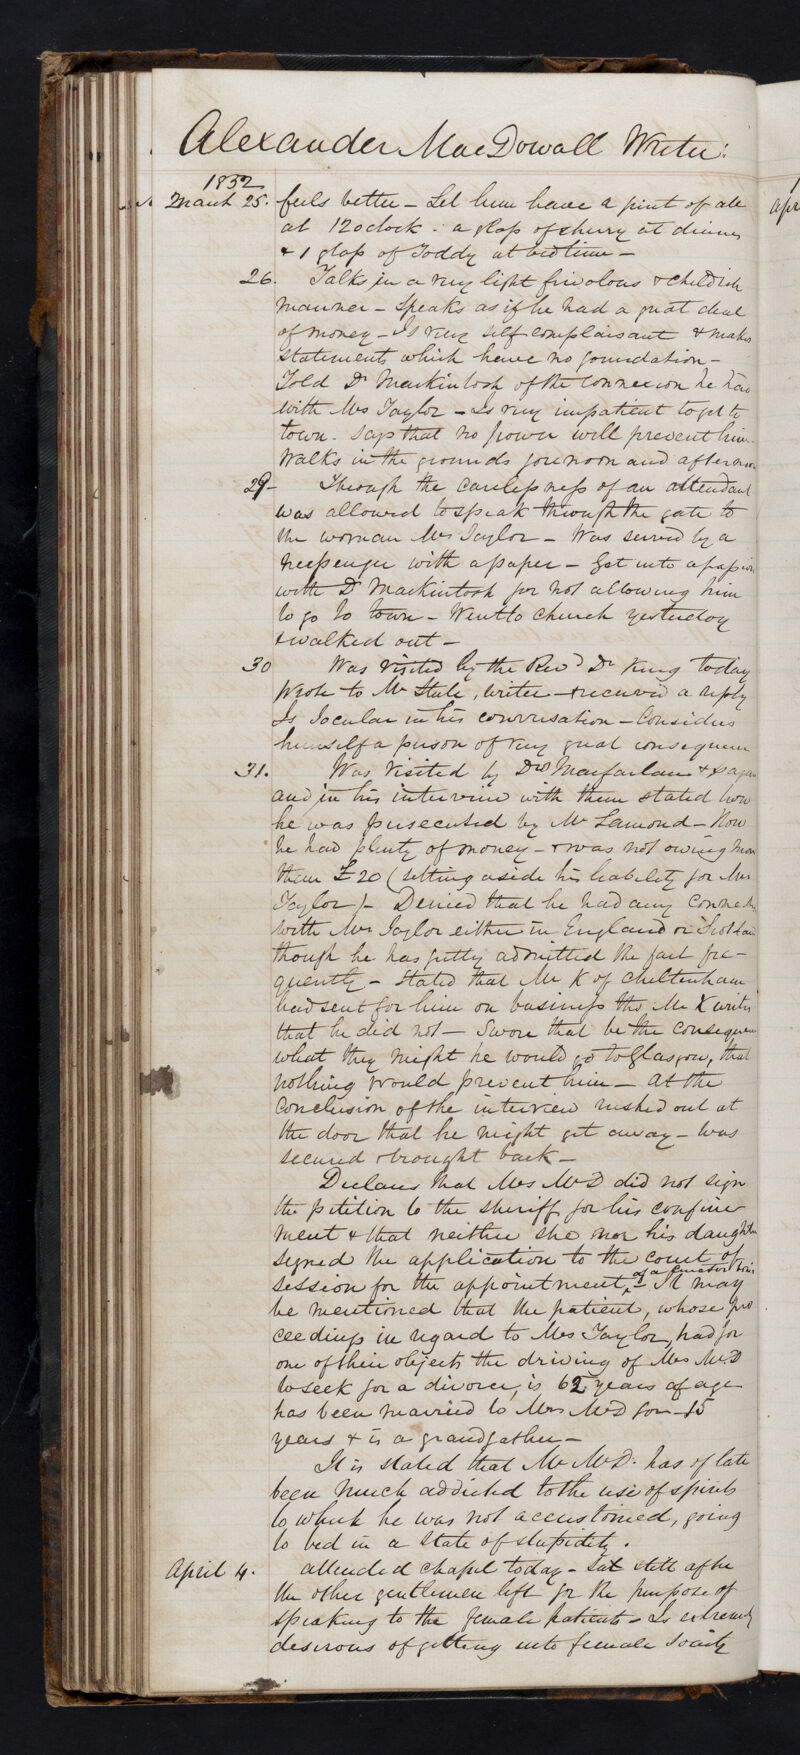 Alexander MacDowall Writer:
1832
March 25. feels better – Let him have a pint of ale
at 12 oclock. a glass of sherry at dinner
& 1 glass of Toddy at bedtime –
26. Talks in a very light frivolous & childish
manner – Speaks as if he had a great deal
of money – Is very self complaisant & makes
statements which have no foundation –
Told Dr Mackintosh of the connexion he has
with Mrs Taylor – Is very impatient to get to
town. Says that no power will prevent him.
Walks in the grounds forenoon and afternoon
29 – Through the carelessness of an attendant
was allowed to speak through the gate to
the woman Mrs Taylor – Was served by a
messenger with a paper – Got into a passion
with Dr Mackintosh for not allowing him
to go to town – Went to church yesterday
& walked out –
30 Was visited by the Revd Dr King today
Wrote to Mr Stule, writer – & received a reply
Is Jocular in his conversation – Considers
himself a person of very great consequence
31. Was visited by Drs Macfarlane &
and in his interview with them stated how
he was persecuted by Mr Lamond – How
he had plenty of money – & was not owing more
than £20 (setting aside his liability for Mrs
Taylor) – Denied that he had any connect
with Mrs Taylor either in England or Scotland
though he has fully admitted the fact fre-
quently – Stated that Mr K of Cheltenham
had sent for him on business tho Mr K writes
that he did not – Swore that be the consequence
what they might he would go to Glasgow, that
nothing would prevent him – At the
conclusion of the interview rushed out at
the door that he might get away – Was
secured & brought back –
Declares that Mrs McD did not sign
the petition to the sheriff for his confine
ment & that neither she nor his daughter
signed the application to the court of
session for the appointment of a curator bonis – It may
be mentioned that the patient, whose pro
ceedings in regard to Mrs Taylor, had for
one of their objects the driving of Mrs McD
to seek for a divorce, is 62 years of age
has been married to Mrs McD for 15
years & is a grandfather –
It is stated that Mr McD. has of late
been much addicted to the use of spirits
to which he was not accustomed, going
to bed in a state of stupidity.
April 4. attended chapel today – Sat still after
the other gentlemen left for the purpose of
speaking to the female patients – Is extremely
desirous of getting into female society